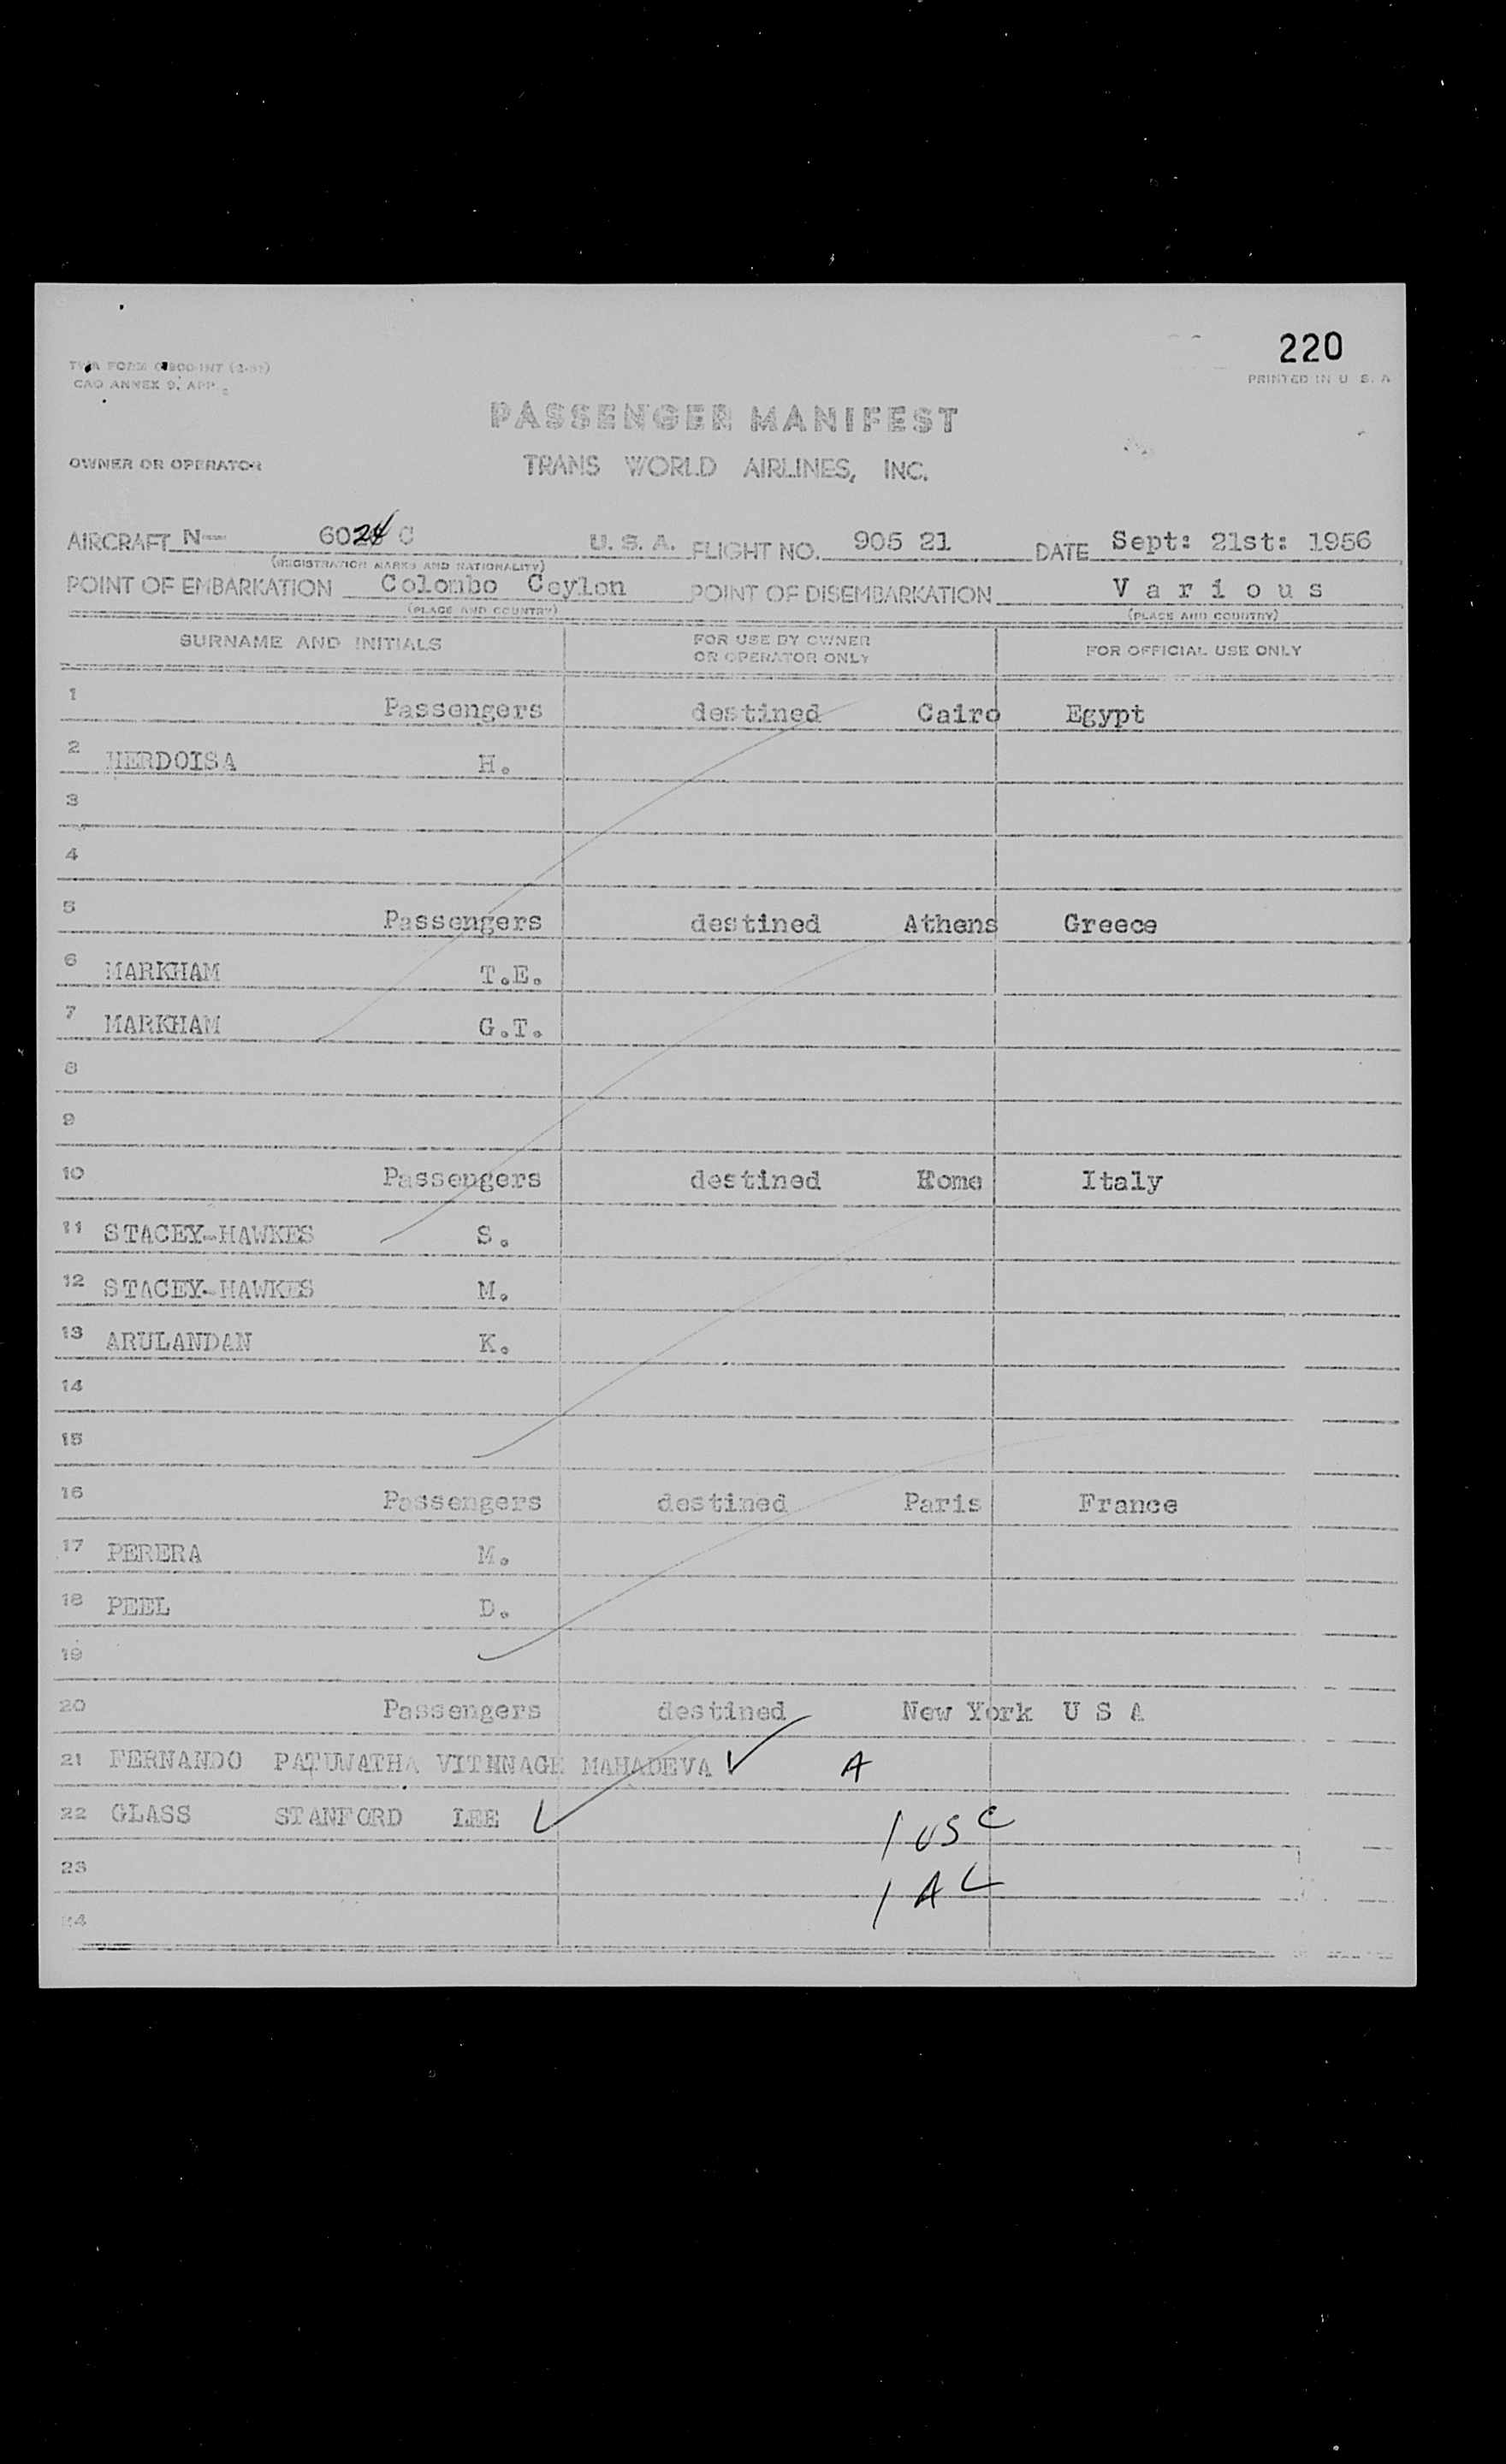 220
PRINTED IN U. S. A
CAO ANNEX 9, APP
PASSENGER MANIFEST
OWNER OR OPERATOR TRANS WORLD AIRLINES, INC.
AIRCRAFT N-- 6024 C U. S. A. FLIGHT NO. 905 21 DATE Sept: 21st: 1956
(REGISTRATION MARKS AND NATIONALITY)
POINT OF EMBARKATION Colombo Ceylon POINT OF DISEMBARKATION Various
(PLACE AND COUNTRY) (PLACE AND COUNTRY)
SURNAME AND INITIALS FOR USE BY OWNER OR OPERATOR ONLY FOR OFFICIAL USE ONLY
1 Passengers destined Cairo Egypt
2 HERDOISA H.
3
4
5 Passengers destined Athens Greece
6 MARKHAM T.E.
7 MARKHAM G.T.
8
9
10 Passengers destined Rome Italy
11 STACEY-HAWKES S.
12 STACEY-HAWKES M.
13 ARULANDAN K.
14
15
16 Passengers destined Paris France
17 PERERA M.
18 PEEL D.
19
20 Passengers destined New York U S A
21 FERNANDO PATUWATHA VITENNAGE MAHADEVA ✓ A
22 GLASS STANFORD LEE ✓ 1 USC
23 1 A L
24